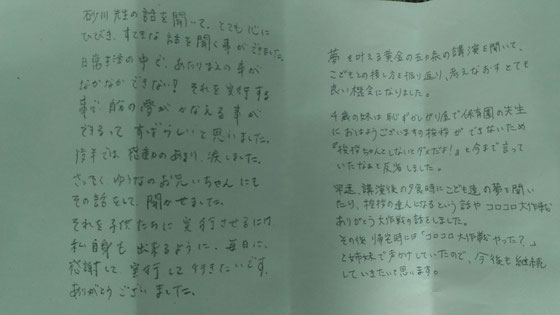 砂川先生の話を聞いて、とても心に
ひびき、すてきな話を聞く事ができました。
日常生活の中で、あたりまえの事が
なかなかできない！それを実行する
事で、夢がかなえる事が
できるって すばらしいと思いました。
後半では、感動のあまり、涙しました。
さっそく、お兄いちゃんにも
その話をして、聞かせました。
それを子供たちに実行させるには
私自身も出来るように、毎日に、
感謝して、実行して行きたいです。
ありがとうございました。
夢を叶える黄金の五ヶ条の講演を聞いて、
こどもとの接し方を振り返り、考えなおすとても
良い機会になりました。
4歳の妹は恥ずかしがり屋で保育園の先生
におはようございますの挨拶ができないため
『挨拶ちゃんとしないとダメだよ！』と今まで言って
いたなぁと反省しました。
早速、講演後の夕食時にこども達の夢を聞い
たり、挨拶の達人になるという話やコロコロ大作戦
ありがとう大作戦の話をしました。
その後 帰宅時には「コロコロ大作戦やった？」
と姉妹で声かけしていたので、今後も継続
していきたいと思います。